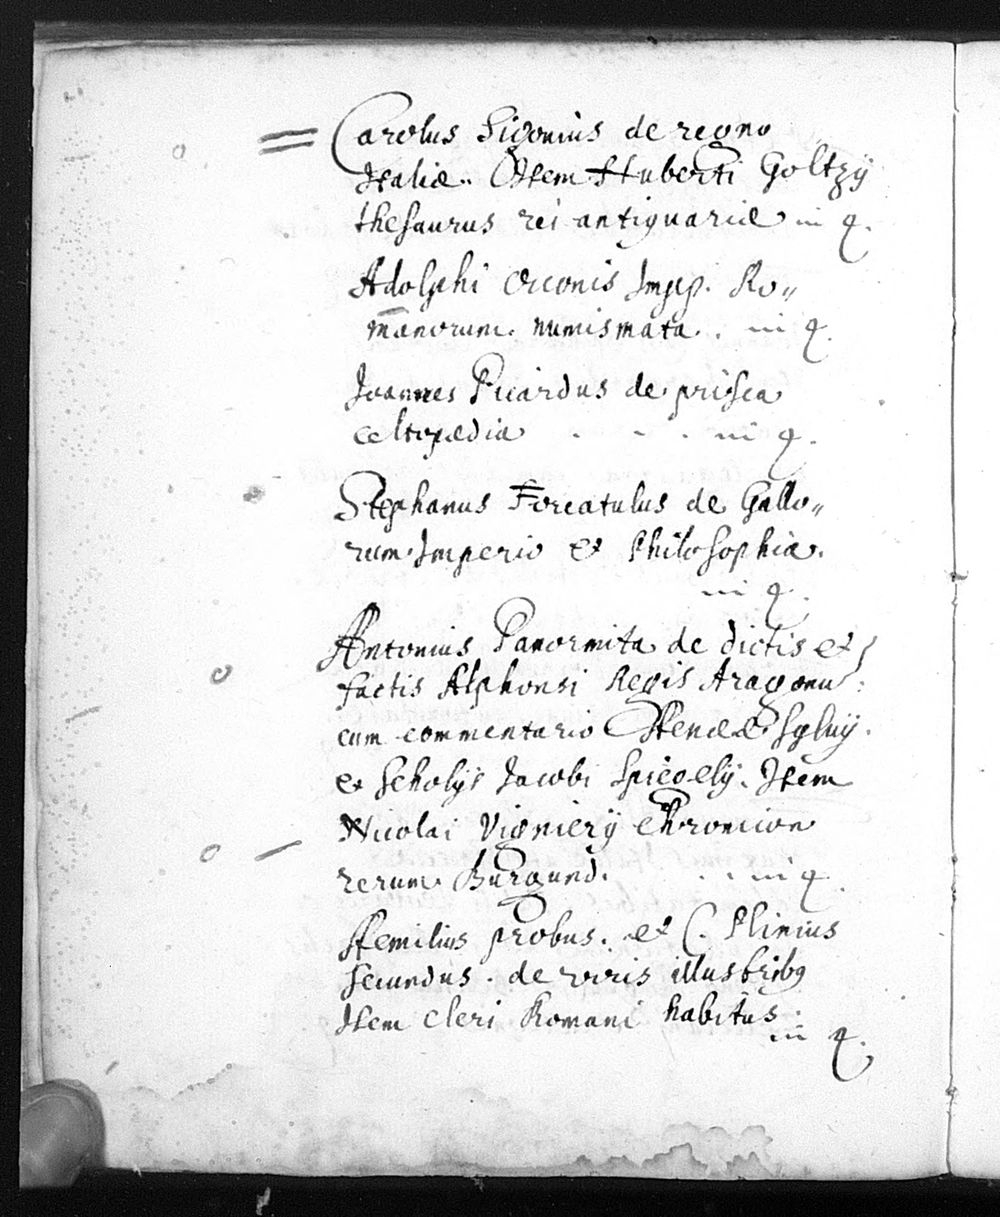 Carolus Sigonius de regno
Italiæ. Item Huberti Goltzij
thesaurus rei antiquariæ in 4.
Adolphi Occonis Impp. Ro„
manorum. numismata. in 4.
Joannes Picardus de prisca
celtopædia . . . in 4.
Stephanus Forcatulus de Gallo„
rum Imperio et Philosophia.
in 4.
Antonius Panormita de dictis et
factis Alphonsi Regis Aragonu:
cum commentario Æneæ Sylvij.
et scholijs Jacobi Spiegelij. Item
Nicolai Vignierij Chronicon
rerum Burgund. . . in 4.
Aemilius probus. et C. Plinius
secundus. de viris illustribq
Item cleri Romani habitus.
in 4.